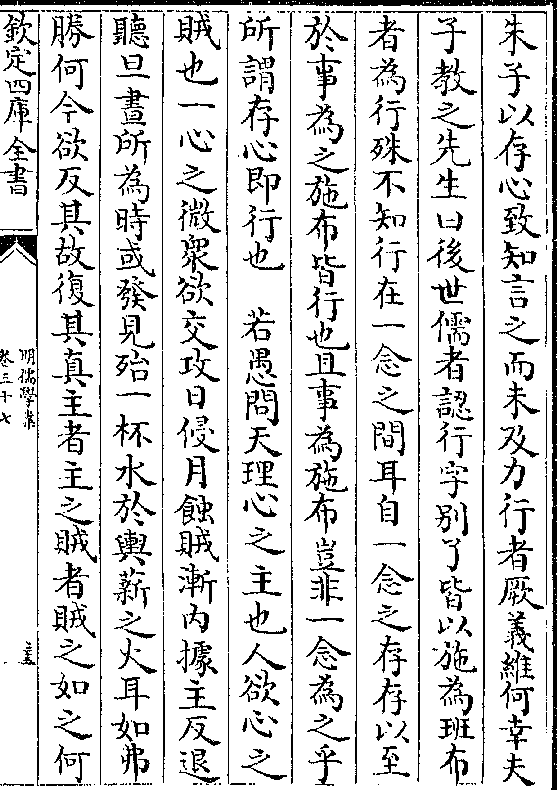 朱子以存心致知言之而未及力行者厥義維何幸夫
子教之先生曰後世儒者認行字别了皆以施為班布
者為行殊不知行在一念之間耳自一念之存存以至
於事為之施布皆行也且事為施布豈非一念為之乎
所謂存心即行也　若愚問天理心之主也人欲心之
賊也一心之微衆欲交攻日侵月蝕賊漸内據主反退
聽旦晝所為時或發見殆一杯水於輿薪之火耳如弗
勝何今欲反其故復其真主者主之賊者賊之如之何
欽定四庫全書
明儒學案
卷三十七